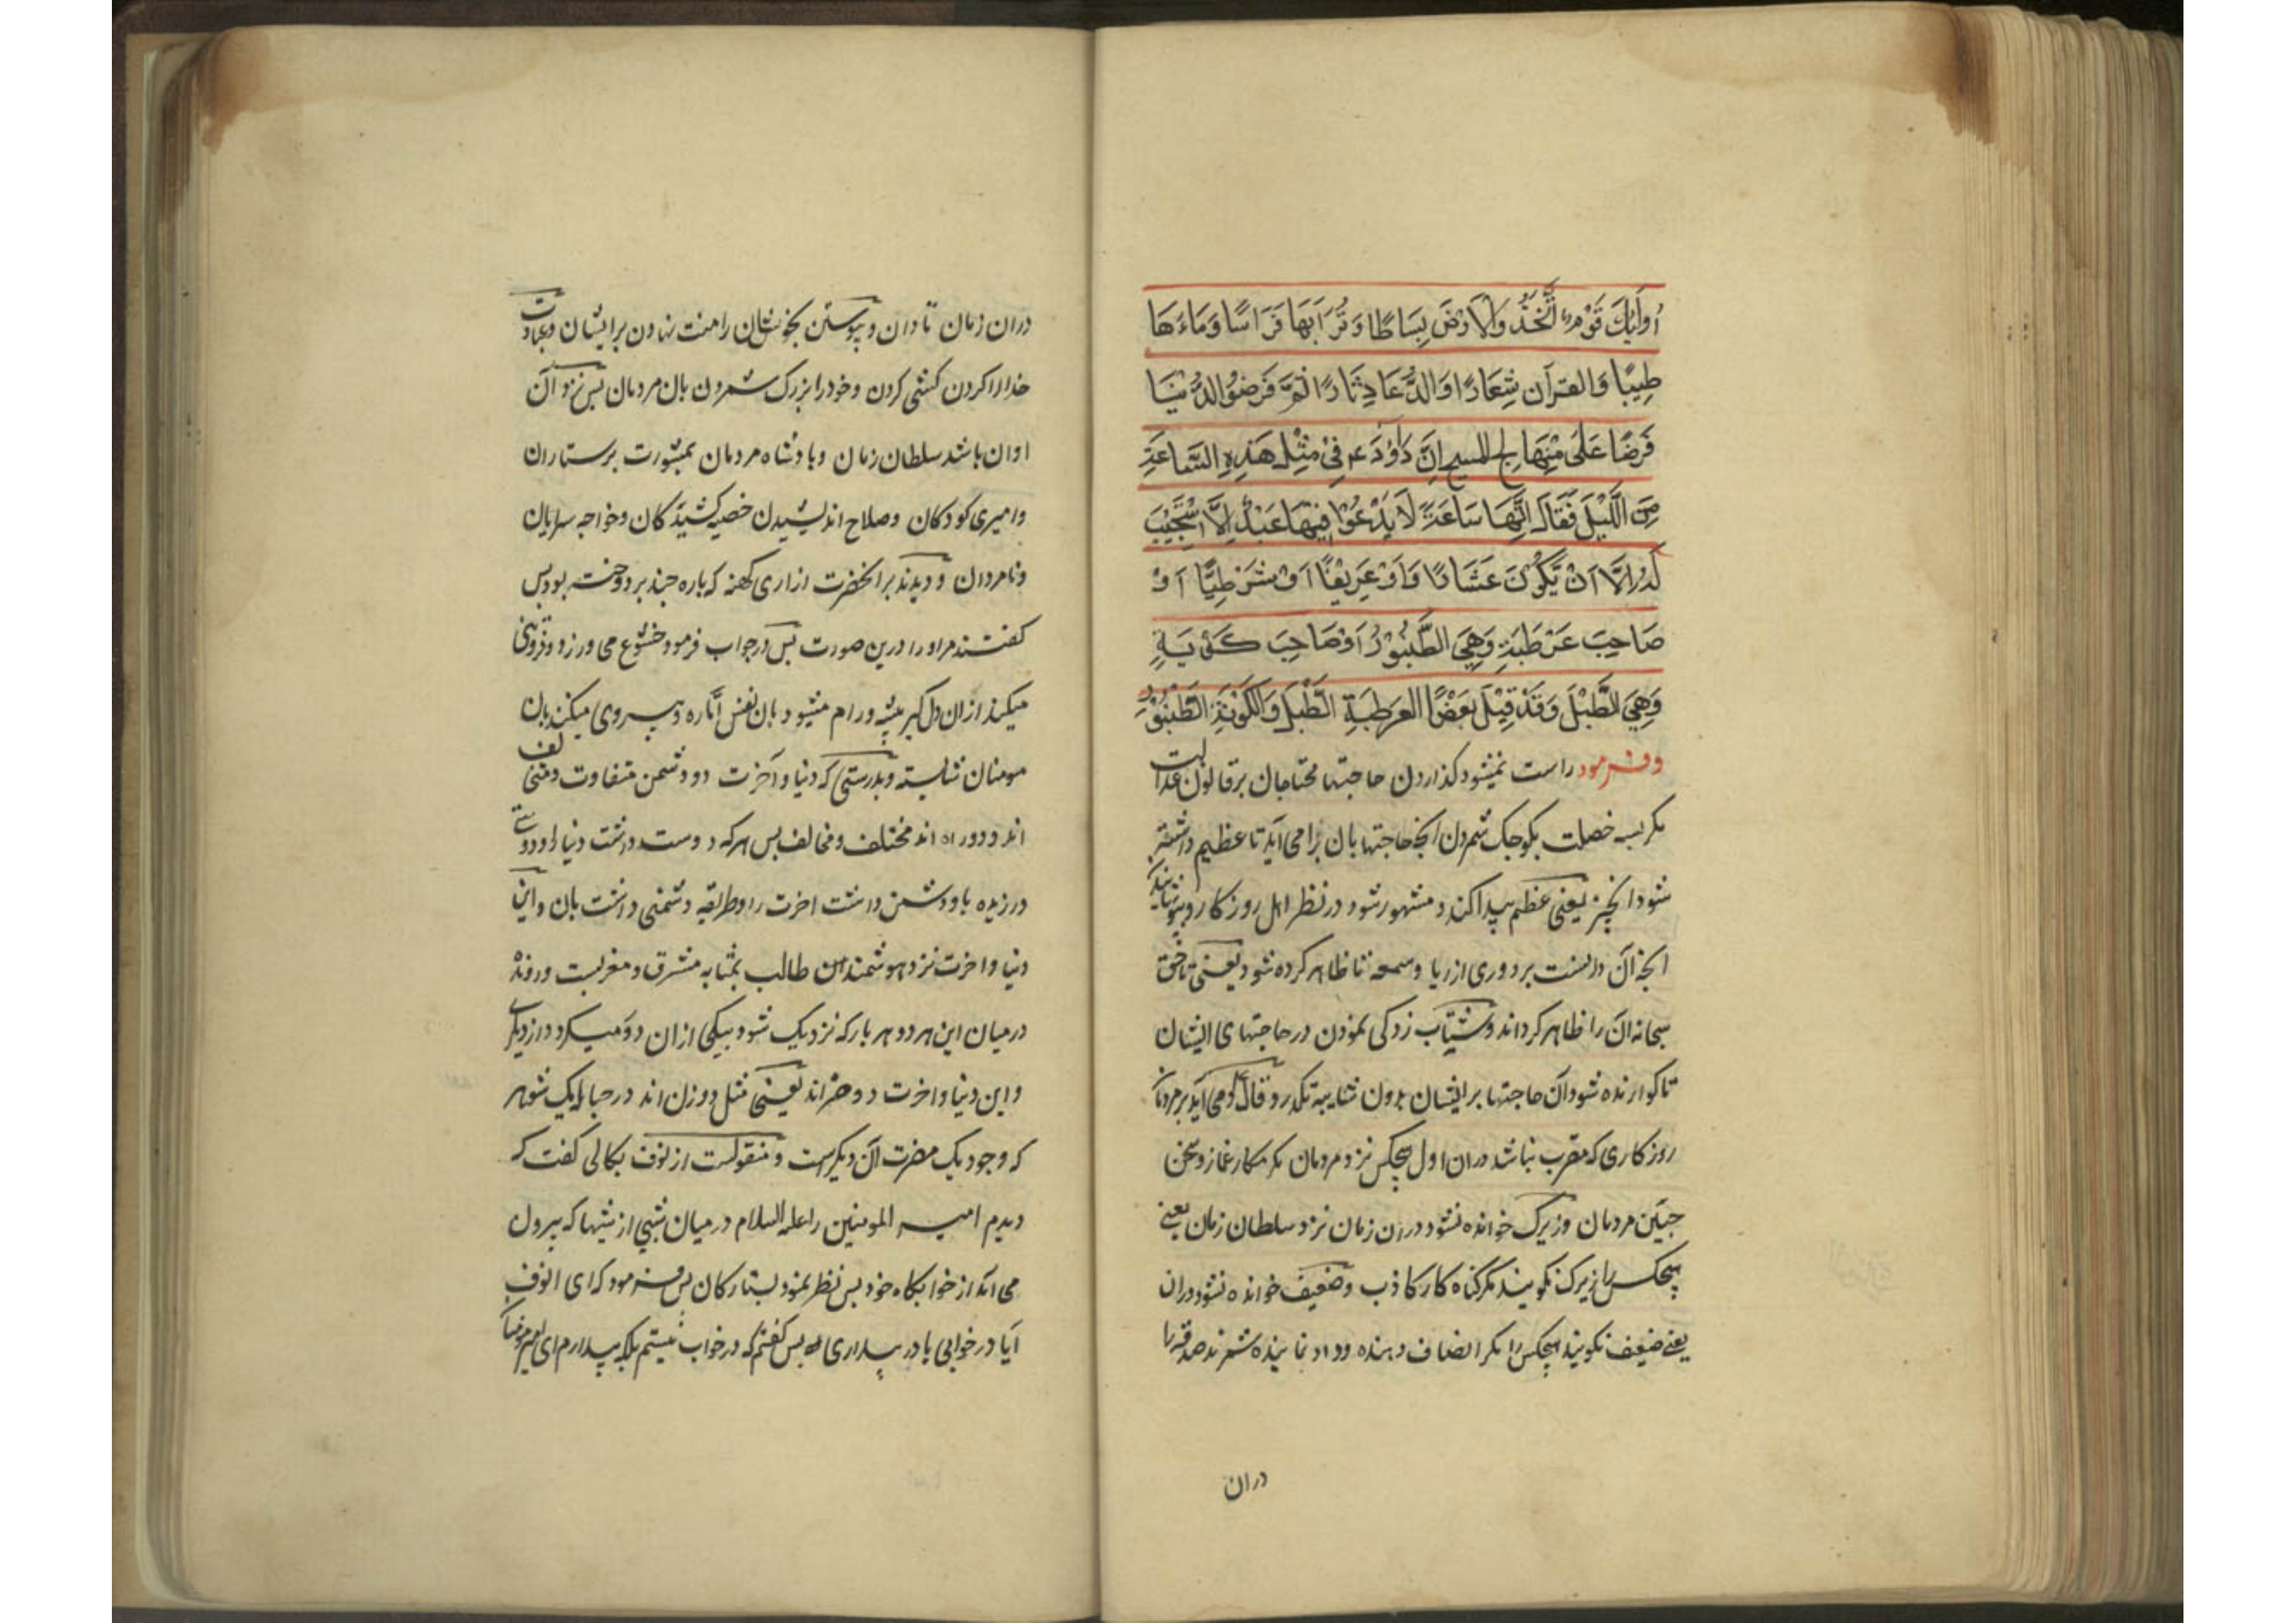 أُولٰئِكَ قَوْمٌ اتَّخَذُوا الْاَرْضَ بِسَاطًا وَتُرَابَهَا فَرَاشًا وَمَاءَهَا
طِيبًا وَالقرآن شِعَارًا وَالدُّعَا دِثَارًا ثُمَّ قَرَضُوُا الدُّنْيَا
قَرضًا عَلَى مِنْهَاجِ المسيح اِنَّ دَاوُدَ ع فِىْ مِثْلِ هَذِهِ السَّاعَةِ
مِنَ اللَّيْلِ فَقَالَ اِنَّهَا سَاعَةً لَا يَدْعُوْا فِيْهَا عَبْدٌ اِلَّا اسْتُجِيْبَ
لَهُ اِلَّا اَنْ يَكُوْنَ عَشَّارًا وَاَوْ عَرِيْفًا اَوْ شُرْطِيًّا اَوْ
صَاحِبَ عَرْطَبَةٍ وَهِيَ الطَّنْبُوْرُ اَوْ صَاحِبَ كَوْبَةٍ
وَهِيَ الطَّبْلَ وَقَدْ قِيْلَ بَعْضًا العرطبَةِ الطَّبْلَ وَالكَوْبَةِ الطَّنْبُوْرِ
وفرمود راست نمیشود کذاردن حاجتها محتاجان برقانون عدالت
مکر بسه خصلت بکوجک شمردن انچه حاجتها بان برامی آید تا عظیم داشته
شود انچیز یعنی عظم پیدا کند و مشهور شود در نظر اهل روزکار
انچه آن دانست بر دوری از ریا و سمعه تا ظاهر کرده شود یعنی تا حق
سبحانه آن را ظاهر کرداند وشتاب زدکی نمودن در حاجتهای ایشان
تا کوارنده شود آن حاجتها بر ایشان بدون شایبه تکدر وقال ع می آید بر مردمان
روزکاری که مقرب نباشد در ان اول هیچکس نزد مردمان مکر مکار غماز و سخن
چین مردمان وزیرک خوانده نشود در ان زمان نزد سلطان زمان یعنی
هیچکس را زیرک نکویند مکر کناه کار کاذب وضعیف خوانده نشود دران
یعنی ضعیف نکویند هیچکس را مکر انصاف دهنده و داد نماینده شمرند صدقه را
دران
دران زمان تاوان وپیوستن بخویشان را منت نهادن بر ایشان وعبادت
خدا را کردن کشی کردن وخود را بزرک شمردن بان مردمان پس نزد آن
اوان باشد سلطان زمان وبادشاه مردمان بمشورت پرستاران
وامیری کودکان وصلاح اندیشیدن خصیه کشیدکان وخواجه سرایان
ونامردان ودیدند بر انحضرت ازاری کهنه که پاره چند بر دوخته بود پس
کفتند مر او را درین صورت پس در جواب فرمود خشوع می ورزد وفروتنی
میکند از ان دل کبر پیشه ورام میشود بان نفس اماره وپیروی میکند بان
مومنان شایسته وبدرستی که دنیا و آخرت دو دشمن متفاوت ومتخالف
اند و دو راه اند مختلف و مخالف پس هر که دوست داشت دنیا را ودوستی
ورزیده با و دشمن داشت اخرت را وطریقه دشمنی داشت بان واین
دنیا واخرت نزد هوشمندان طالب بمثابه مشرق ومغربست ورونده
درمیان این هر دو هر بار که نزدیک شود بیکی از ان دو دور میکردد از دیکری
واین دنیا واخرت دو ضره اند یعنی مثل دو زن اند در حباله یک شوهر
که وجود یک مضرت آن دیکرست ومنقولست از نوف بکالی کفت که
دیدم امیر المومنین را علیه السلام درمیان شبی از شبها که بیرون
می آمد از خوابکاه خود پس نظر نمود بستارکان پس فرمود که ای نوف
آیا در خوابی یا در بیداری پس کفتم که درخواب نیستم بلکه بیدارم ای امیر مومنان